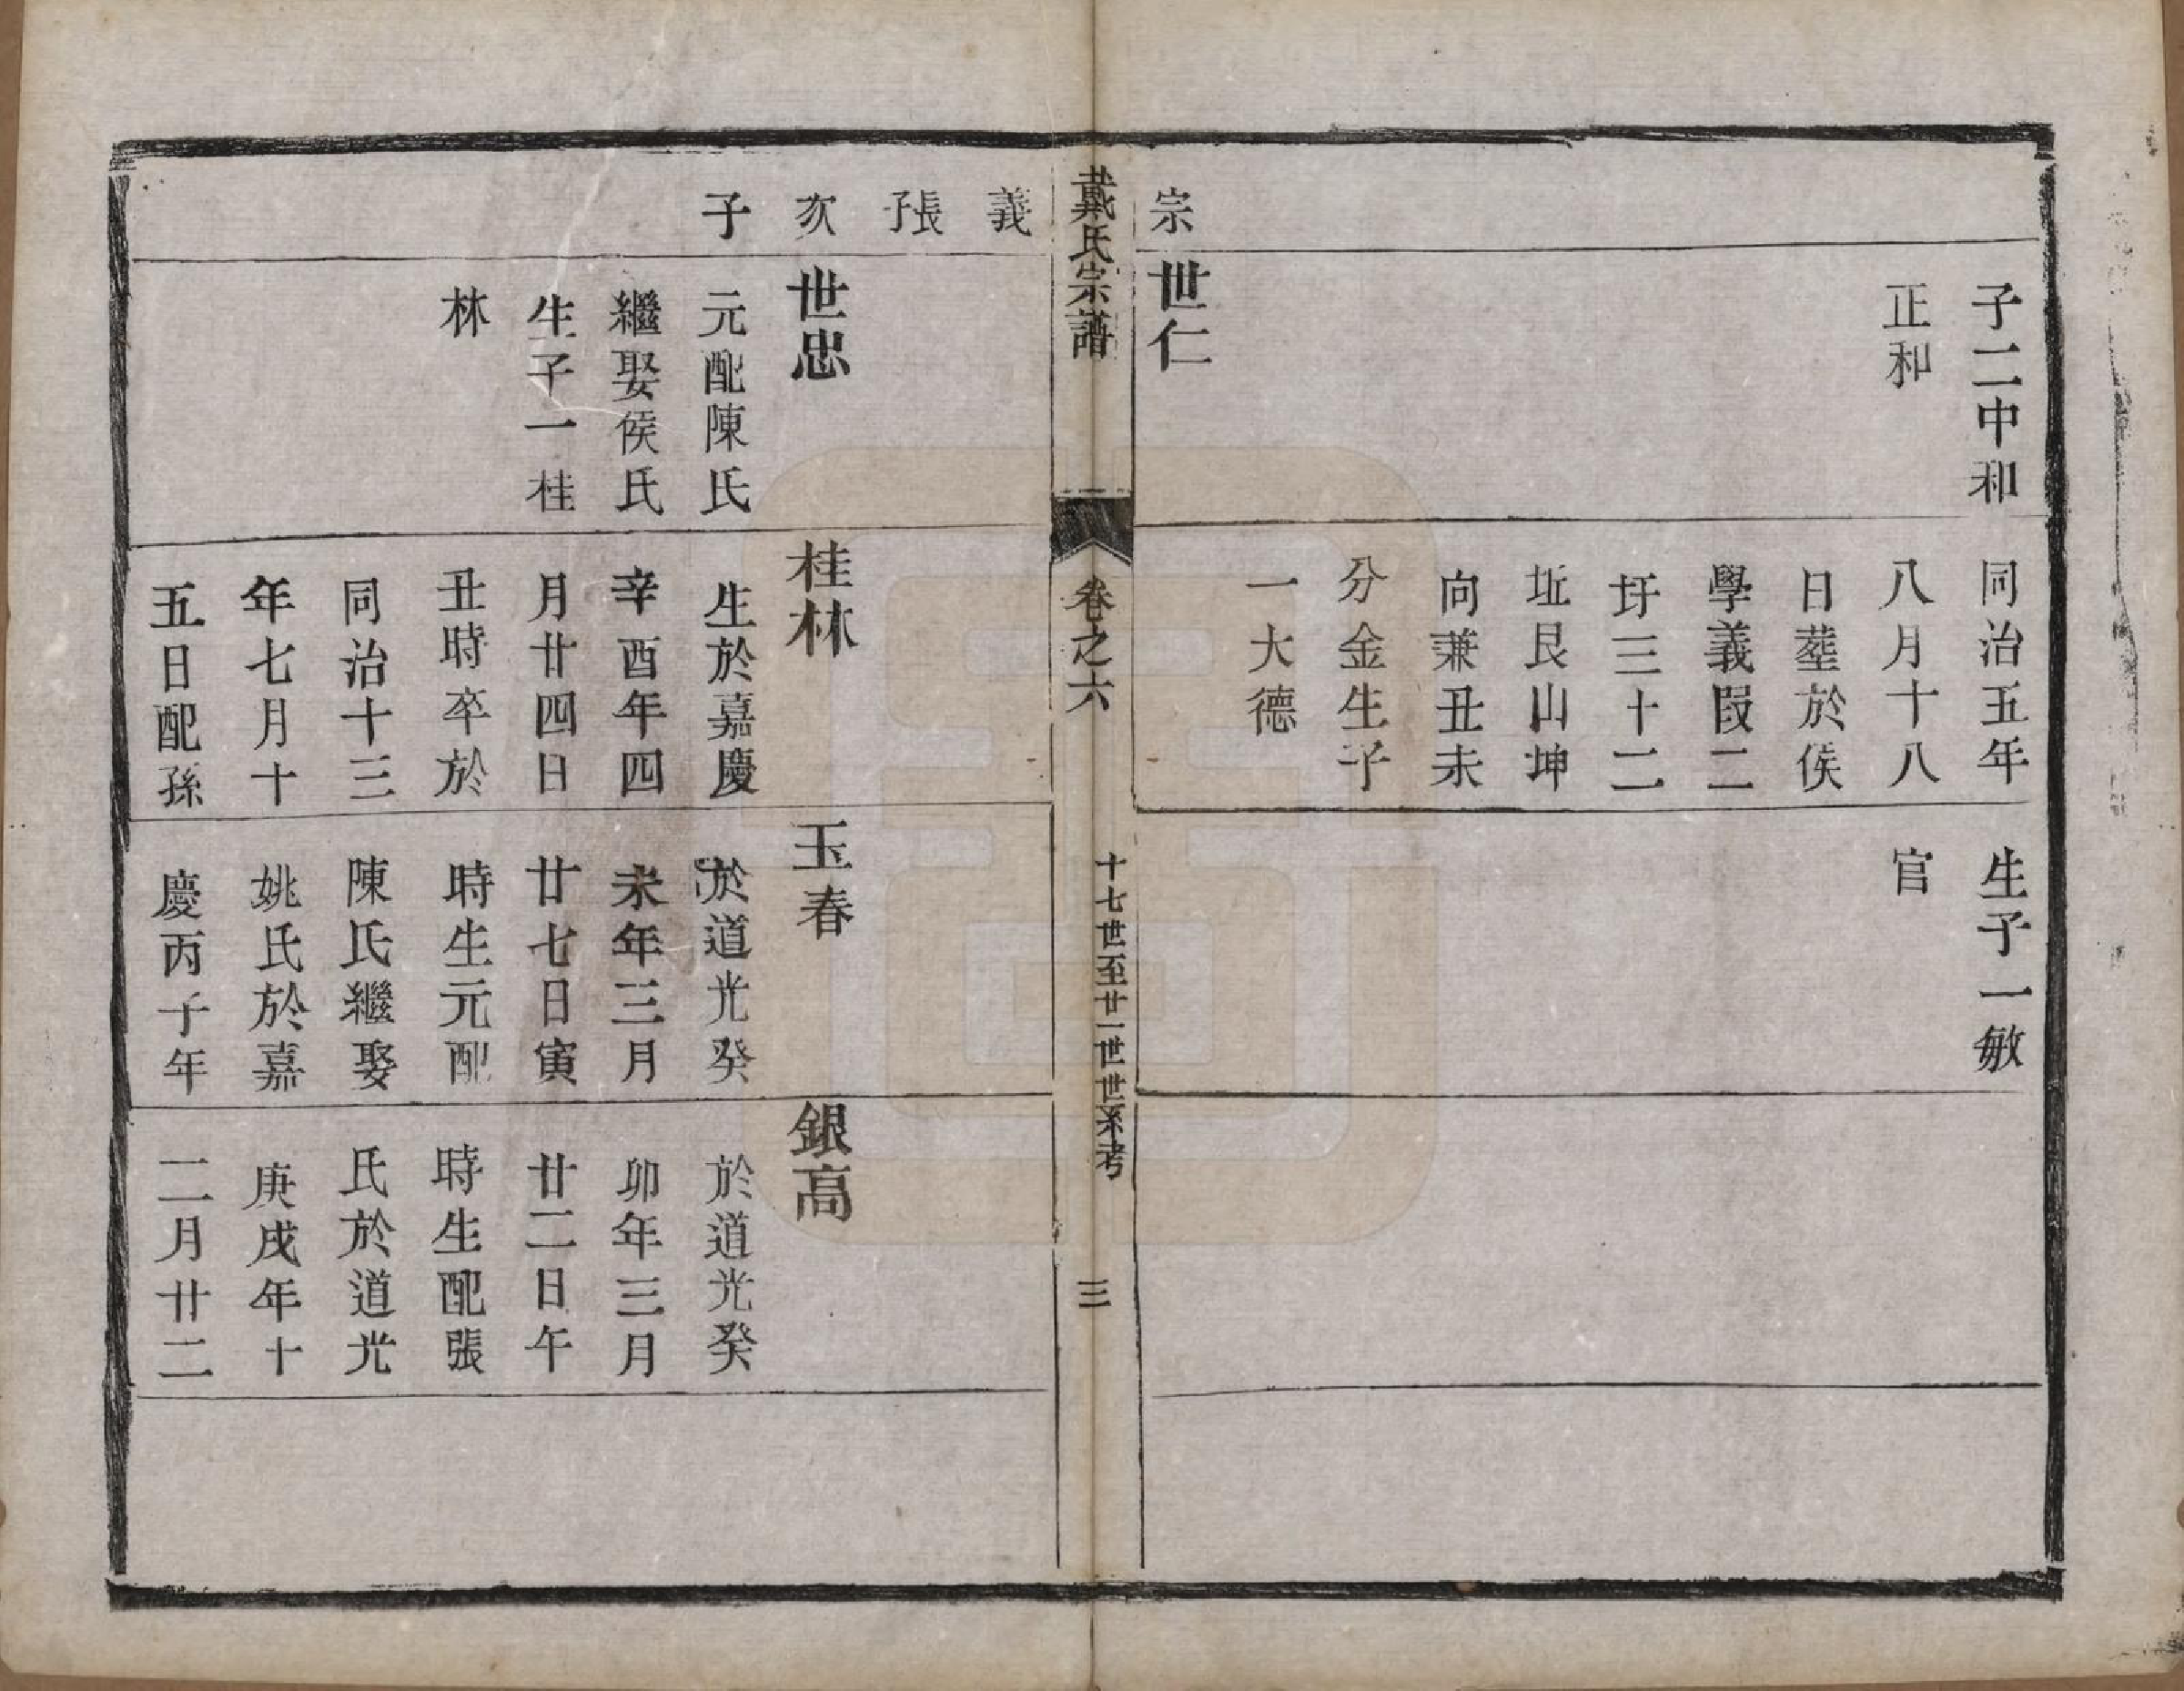 子二中和
正和
同治五年
八月十八
日塟於侯
學義叚二
圩三十二
坵艮山坤
向兼丑未
分金生子
一大德
生子一敏
官
宗
世仁
戴氏宗譜
卷之六
十七世至廿一世世系考
三
義
張子
次
子
世忠
元配陳氏
繼娶侯氏
生子一桂
林
桂林
生於嘉慶
辛酉年四
月廿四日
丑時卒於
同治十三
年七月十
五日配孫
玉春
於道光癸
未年三月
廿七日寅
時生元配
陳氏繼娶
姚氏於嘉
慶丙子年
銀高
於道光癸
卯年三月
廿二日午
時生配張
氏於道光
庚戌年十
二月廿二